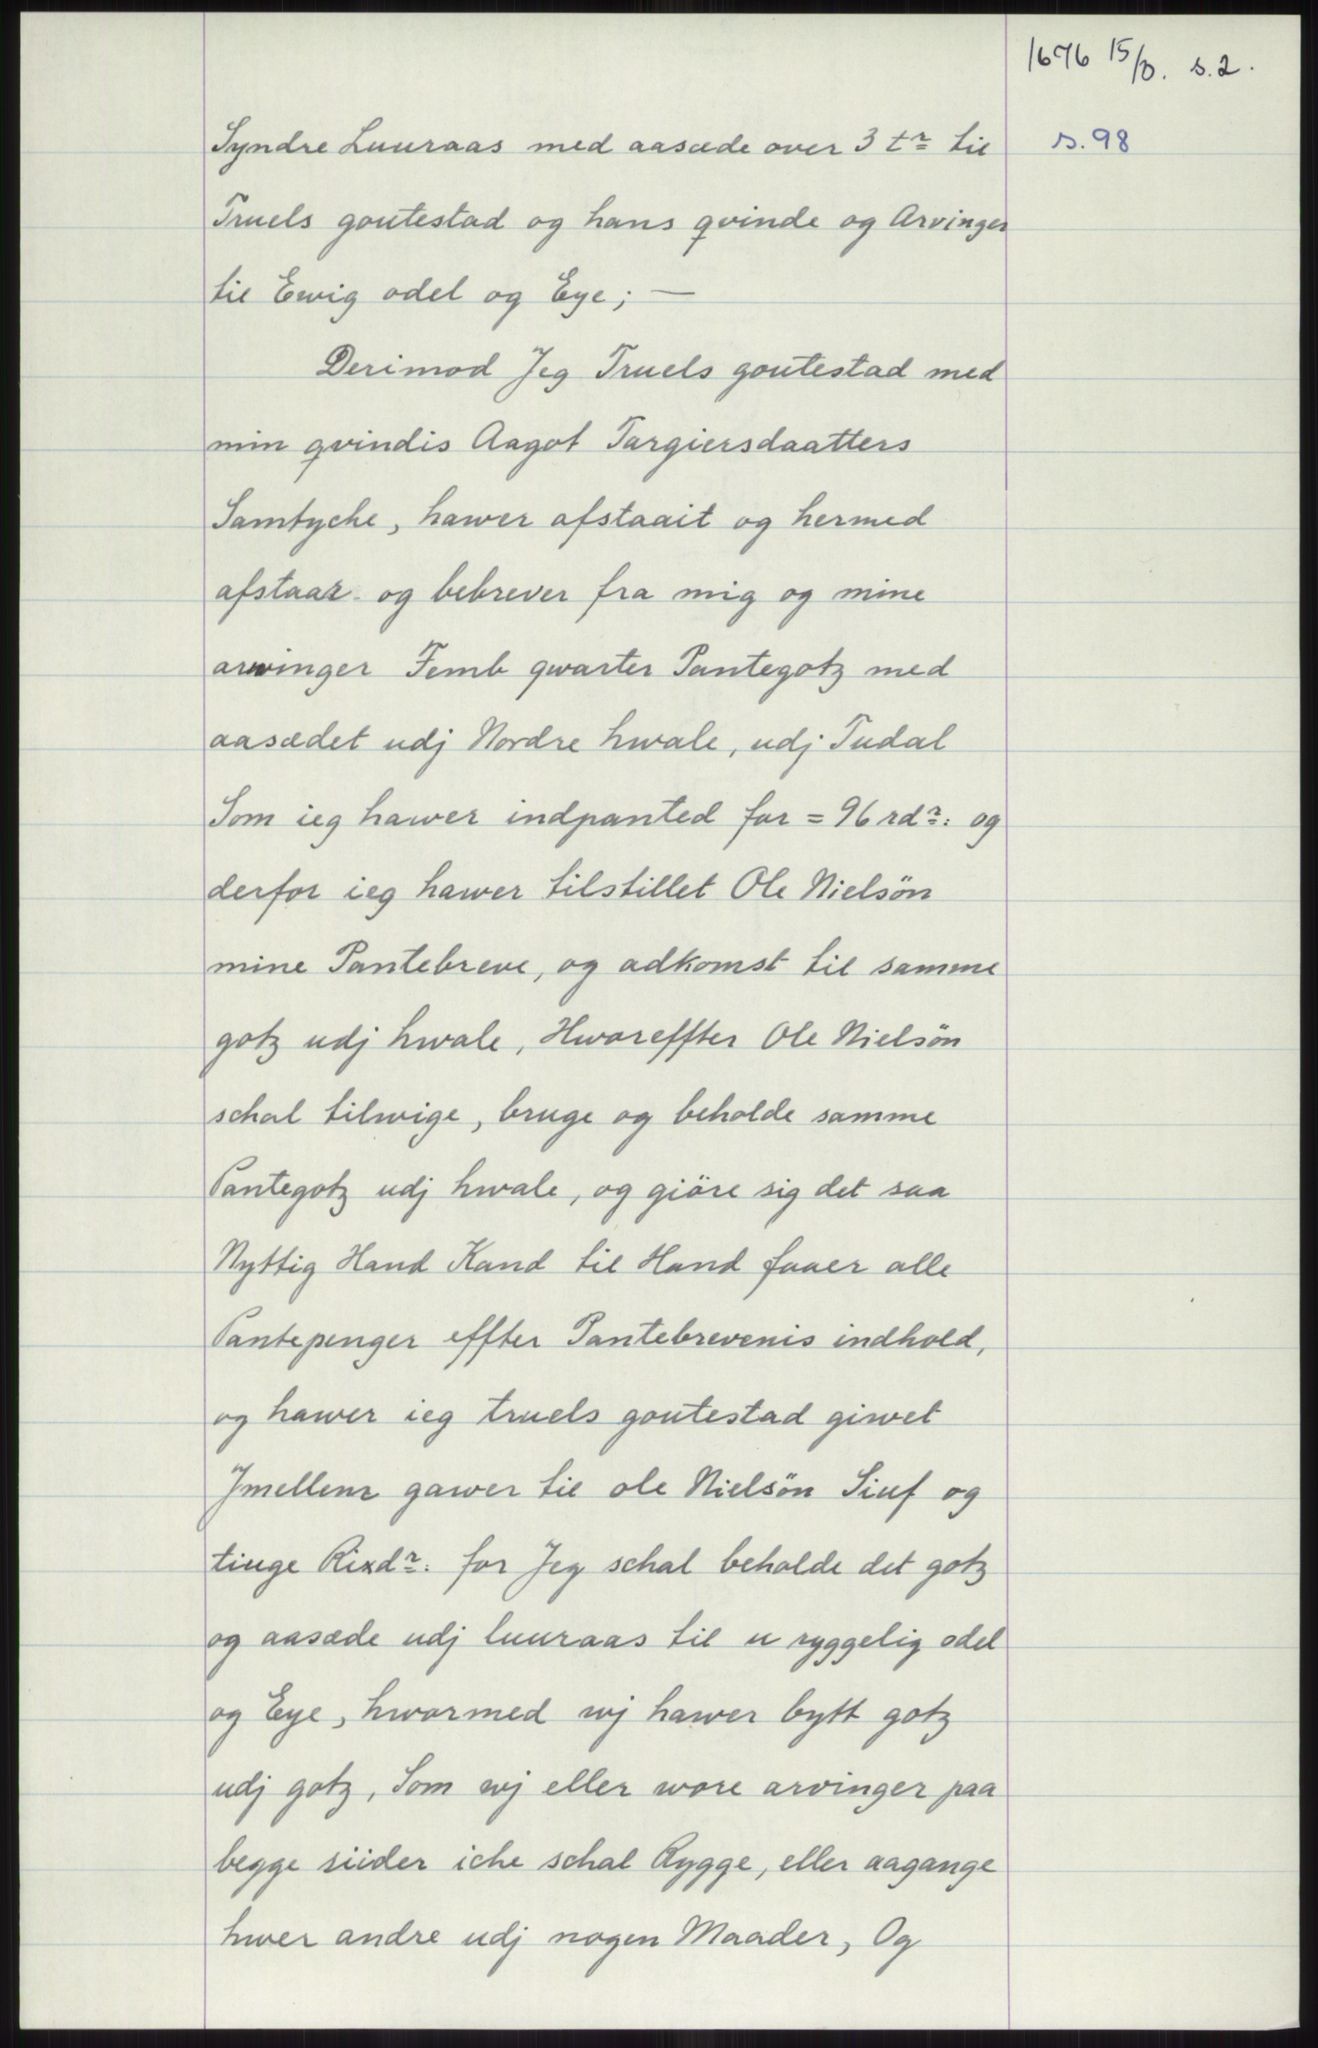 1676 15/8. s.2.
Syndre Luuraas med aasæde over 3 tr til
s. 98
Truels goutestad og hans qvinde og Arvinger
til Ewig odel og Eye; —
Derimod Jeg Truels goutestad med
min qvindis Aagot Targiersdaatters
Samtyche, hawer afstaait og hermed
afstaar og bebrever fra mig og mine
arwinger Femb qwarter Pantegotz med
aasædet udj Nordre hwale, udj Tudal
Som ieg hawer indpanted for = 96 rdr: og
derfor ieg hawer tilstillet Ole Nielsön
mine Pantebreve, og adkomst til samme
gotz udj hwale, Hworeffter Ole Nielsön
schal tilwige, bruge og beholde samme
Pantegotz udj hwale, og giöre sig det saa
Nyttig Hand Kand til Hand faaer alle
Pantepenger effter Pantebrevenis indhold,
og hawer ieg truels goutestad giwet
Jmellem gawer til ole Nielsön Siuf og
tiuge Rixdr: for Jeg schal beholde det gotz
og aasæde udj luuraas til u ryggelig odel
og Eye, hwormed wj hawer bytt gotz
udj gotz, Som wj eller wore arvinger paa
begge siider iche schal Rygge, eller aagange
hwer andre udj nogen Maader, Og